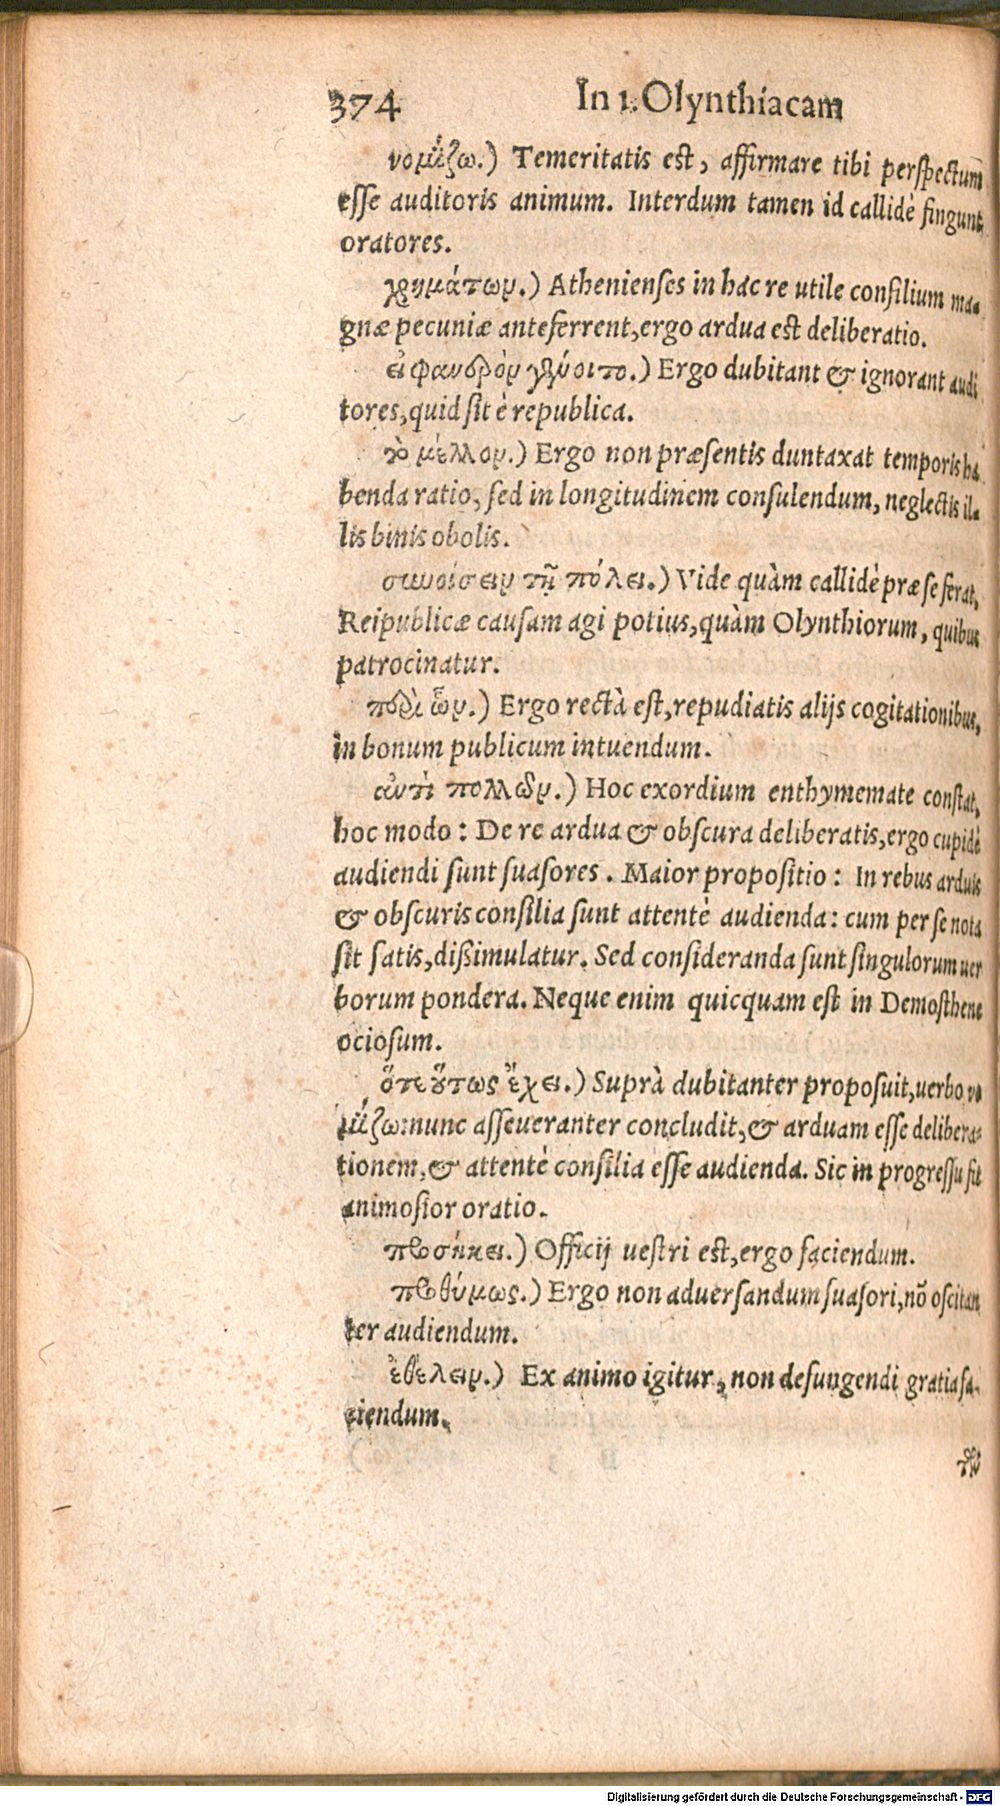 374 In 1. Olynthiacam
νομίζω.) Temeritatis est, affirmare tibi perspectum
esse auditoris animum. Interdum tamen id callidè fingunt
oratores.
χρημάτων.) Athenienses in hac re utile consilium ma-
gnæ pecuniæ anteferrent, ergo ardua est deliberatio.
εἰ φανερὸν γένοιτο.) Ergo dubitant & ignorant audi
tores, quid sit è republica.
τὸ μέλλον.) Ergo non præsentis duntaxat temporis ha
benda ratio, sed in longitudinem consulendum, neglectis il-
lis binis obolis.
συνοίσειν τῇ πόλει.) Vide quàm callidè præ se ferat,
Reipublicæ causam agi potius, quàm Olynthiorum, quibus
patrocinatur.
περὶ ὧν.) Ergo rectà est, repudiatis alijs cogitationibus,
in bonum publicum intuendum.
ἀντὶ πολλῶν.) Hoc exordium enthymemate constat,
hoc modo: De re ardua & obscura deliberatis, ergo cupidè
audiendi sunt suasores. Maior propositio: In rebus arduis
& obscuris consilia sunt attentè audienda: cum per se nota
sit satis, dißimulatur. Sed consideranda sunt singulorum uer
borum pondera. Neque enim quicquam est in Demosthene
ociosum.
ὅτε οὕτως ἔχει.) Suprà dubitanter proposuit, uerbo νο
μίζω: nunc asseueranter concludit, & arduam esse delibera-
tionem, & attentè consilia esse audienda. Sic in progressu fit
animosior oratio.
προσήκει.) Officij uestri est, ergo faciendum.
προθύμως.) Ergo non aduersandum suasori, nõ oscitan
ter audiendum.
ἐθέλειν.) Ex animo igitur, non defungendi gratia fa-
ciendum.
τῶν
Digitalisierung gefördert durch die Deutsche Forschungsgemeinschaft - DFG